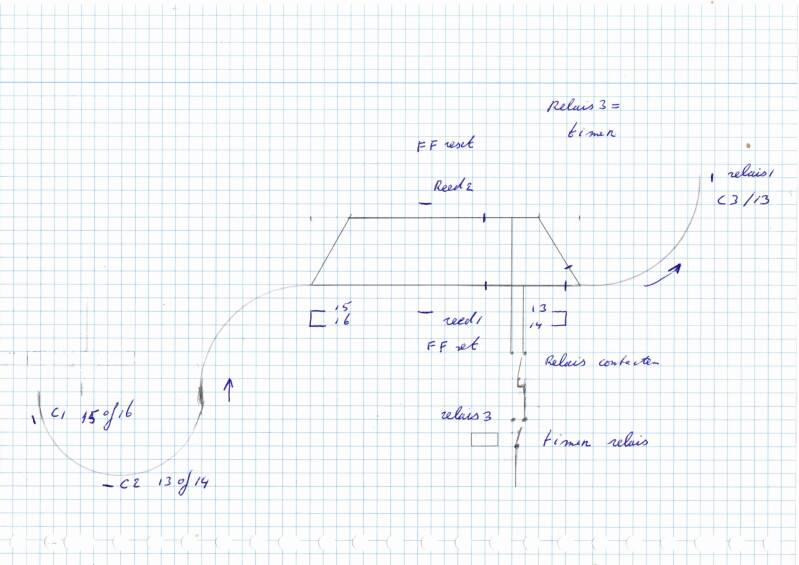 Relais 3 =
timer
FF reset
relais 1
Reed 2
C3 / 13
15
16
13
14
reed 1
FF set
Relais contacten
C1 15 of 16
relais 3
timer relais
C2 13 of 14